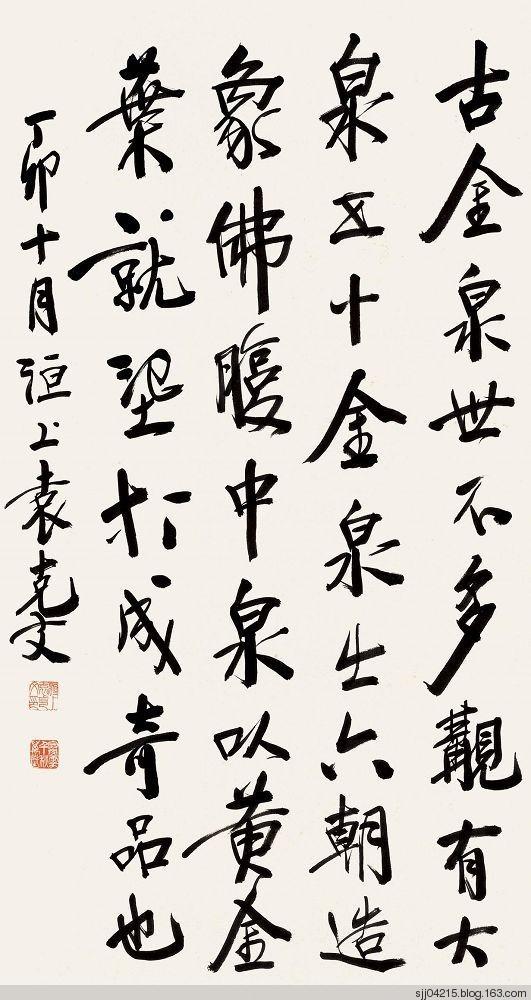 古金泉世不多覯有大
泉五十金泉出六朝造
象佛腹中泉以黄金
葉就型打成奇品也
丁卯十月洹上袁克文
sjj04215.blog.163.com